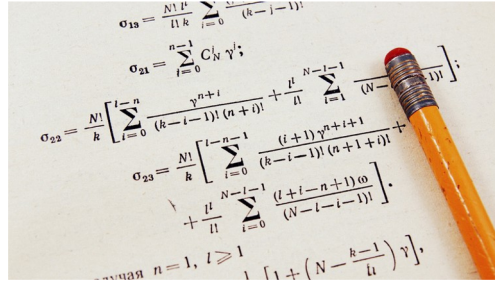 σ₁₃ = N! lˡ / l! k ∑ i=0 (k−i−1)!
σ₂₁ = ∑_{i=0}^{n−1} Cⁱ_N γⁱ;
σ₂₂ = N!/k [ ∑_{i=0}^{l−n} γⁿ⁺ⁱ / (k−i−1)! (n+i)! + lˡ/l! ∑_{i=1}^{N−l−1} / (N− )! ];
σ₂₃ = N!/k [ ∑_{i=0}^{l−n−1} (i+1) γⁿ⁺ⁱ⁺¹ / (k−i−1)! (n+1+i)! +
+ lˡ/l! ∑_{i=0}^{N−l−1} (l+i−n+1) ω / (N−l−i−1)! ].
случая n=1, l⩾1
[ 1 + ( N − (k−1) / ) γ ],